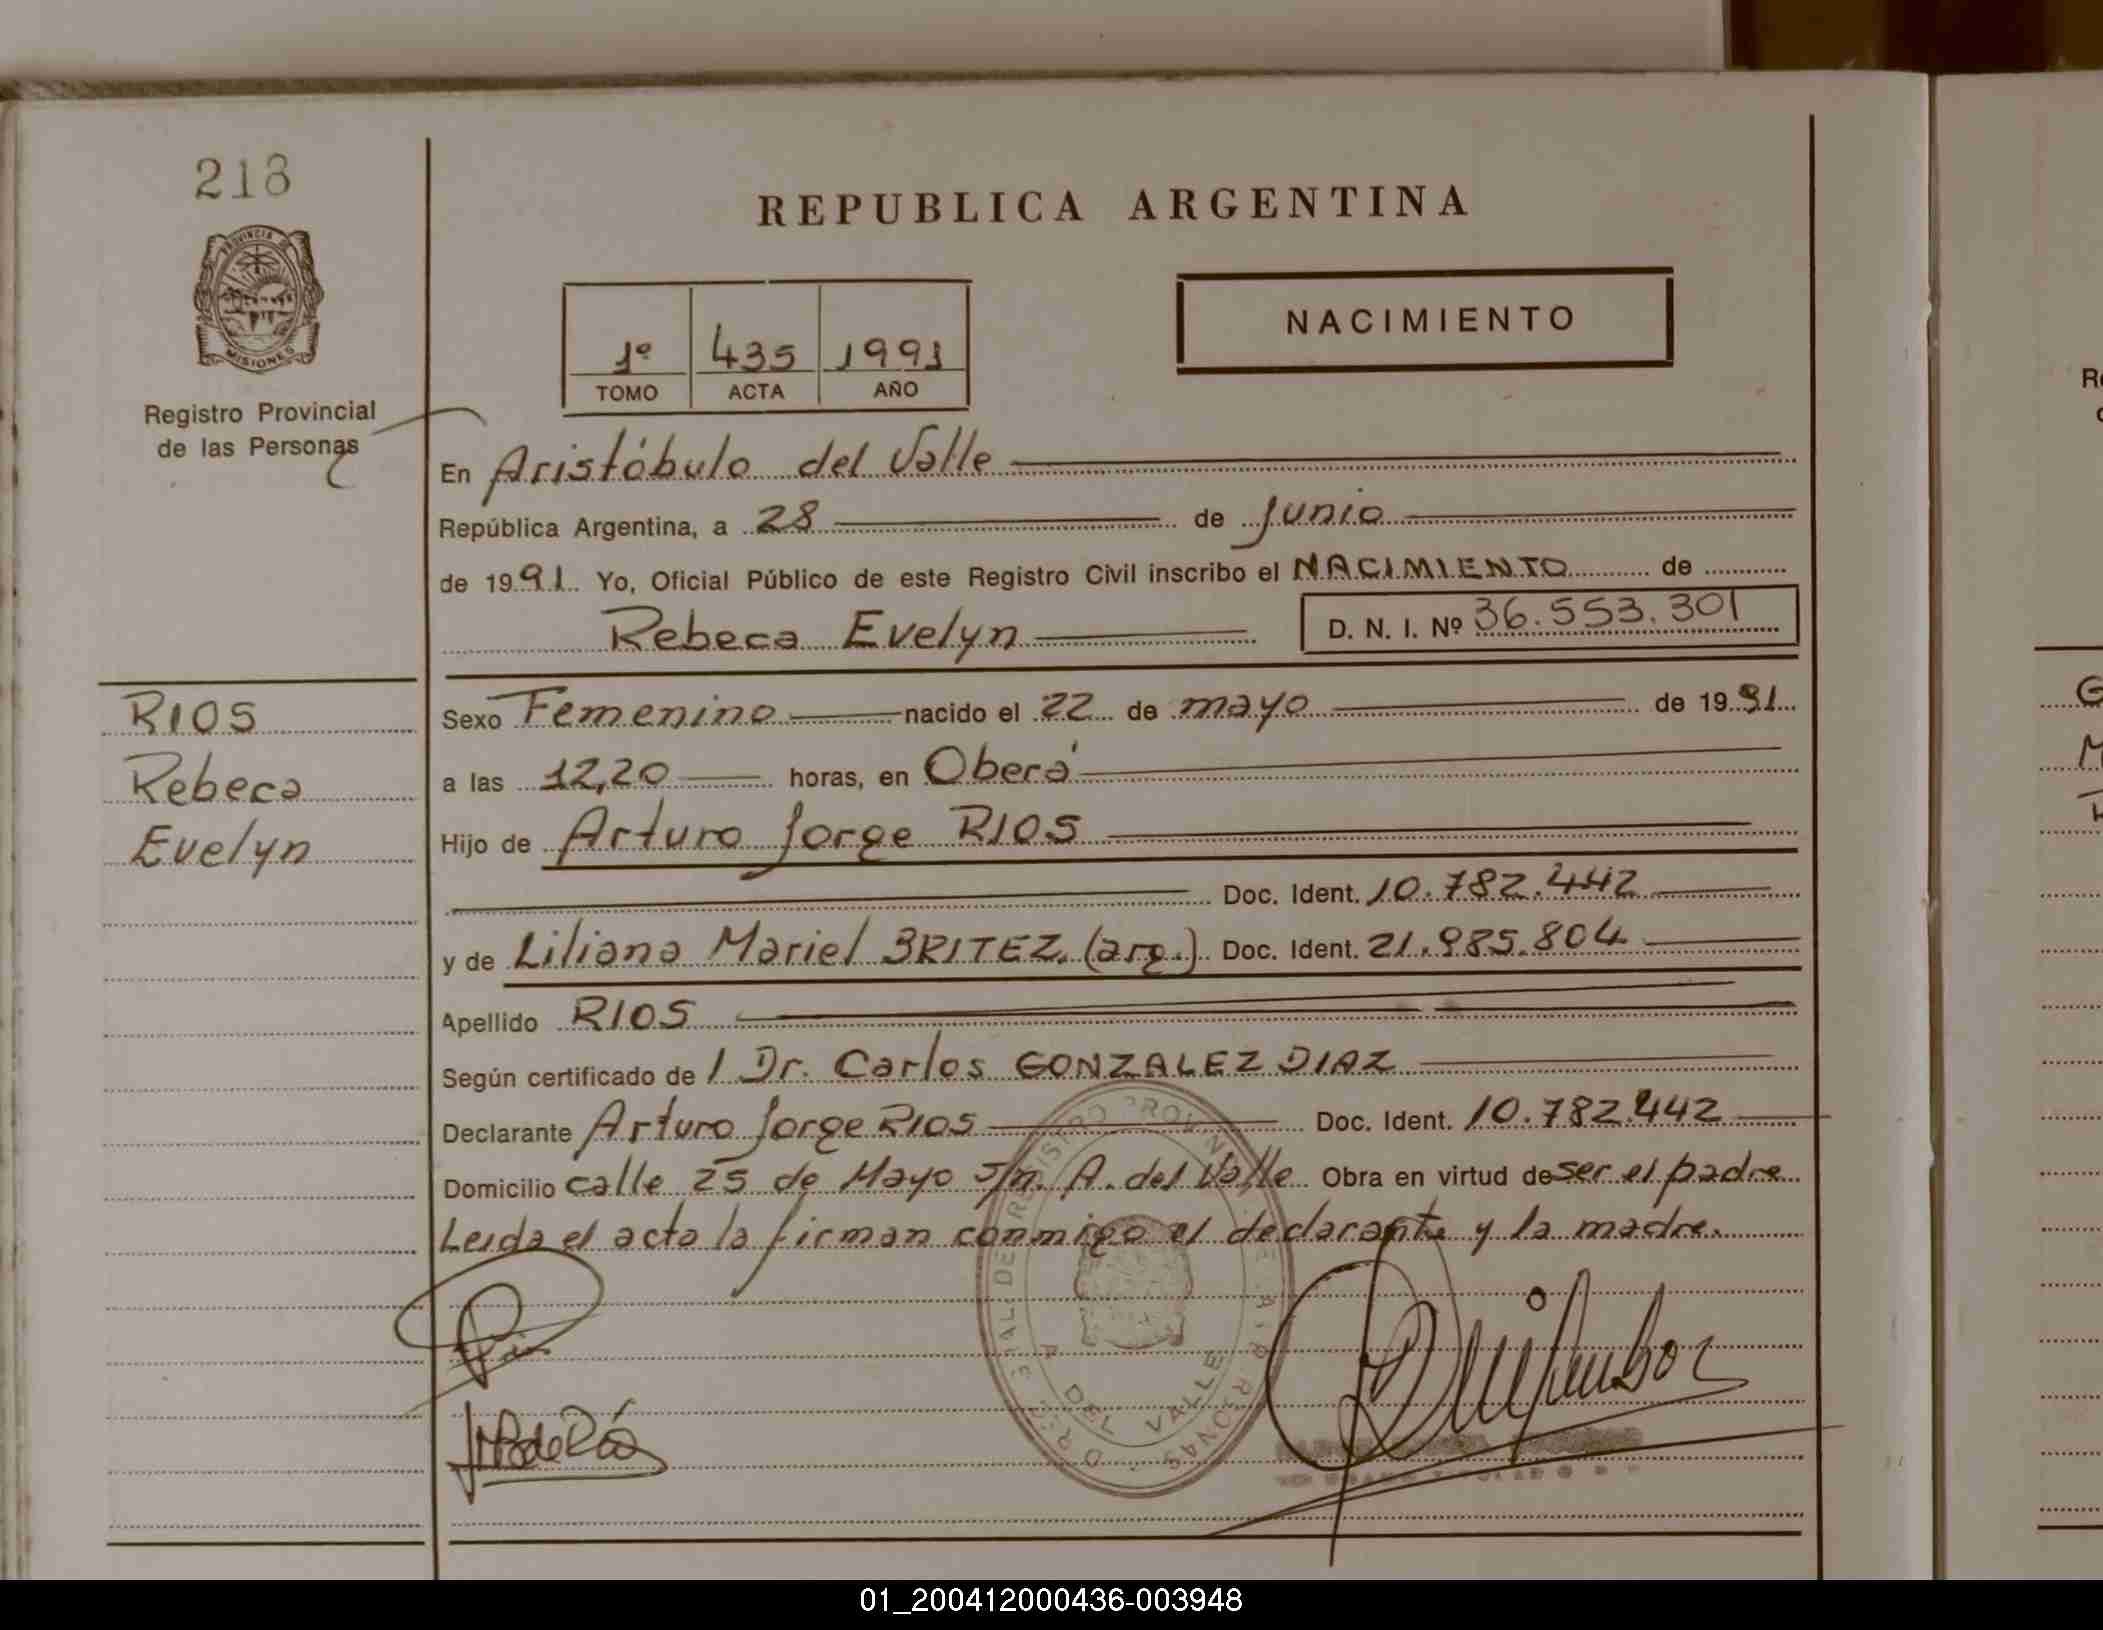 218
PROVINCIA DE
MISIONES
Registro Provincial
de las Personas
REPUBLICA ARGENTINA
1º 435 1991
TOMO ACTA AÑO
NACIMIENTO
En Aristóbulo del Valle
República Argentina, a 28 de Junio
de 1991. Yo, Oficial Público de este Registro Civil inscribo el NACIMIENTO de
Rebeca Evelyn D. N. I. Nº 36.553.301
RIOS
Rebeca
Evelyn
Sexo Femenino nacido el 22 de mayo de 1991
a las 12,20 horas, en Oberá
Hijo de Arturo Jorge RIOS
Doc. Ident. 10.782.442
y de Liliana Mariel BRITEZ. (arg.) Doc. Ident. 21.985.804
Apellido RIOS
Según certificado de / Dr. Carlos GONZALEZ DIAZ
Declarante Arturo Jorge RIOS Doc. Ident. 10.782.442
Domicilio calle 25 de Mayo S/n. A. del Valle Obra en virtud de ser el padre
Leida el acta la firman conmigo el declarante y la madre.
DEL VALLE
R
G
M
R
01_200412000436-003948